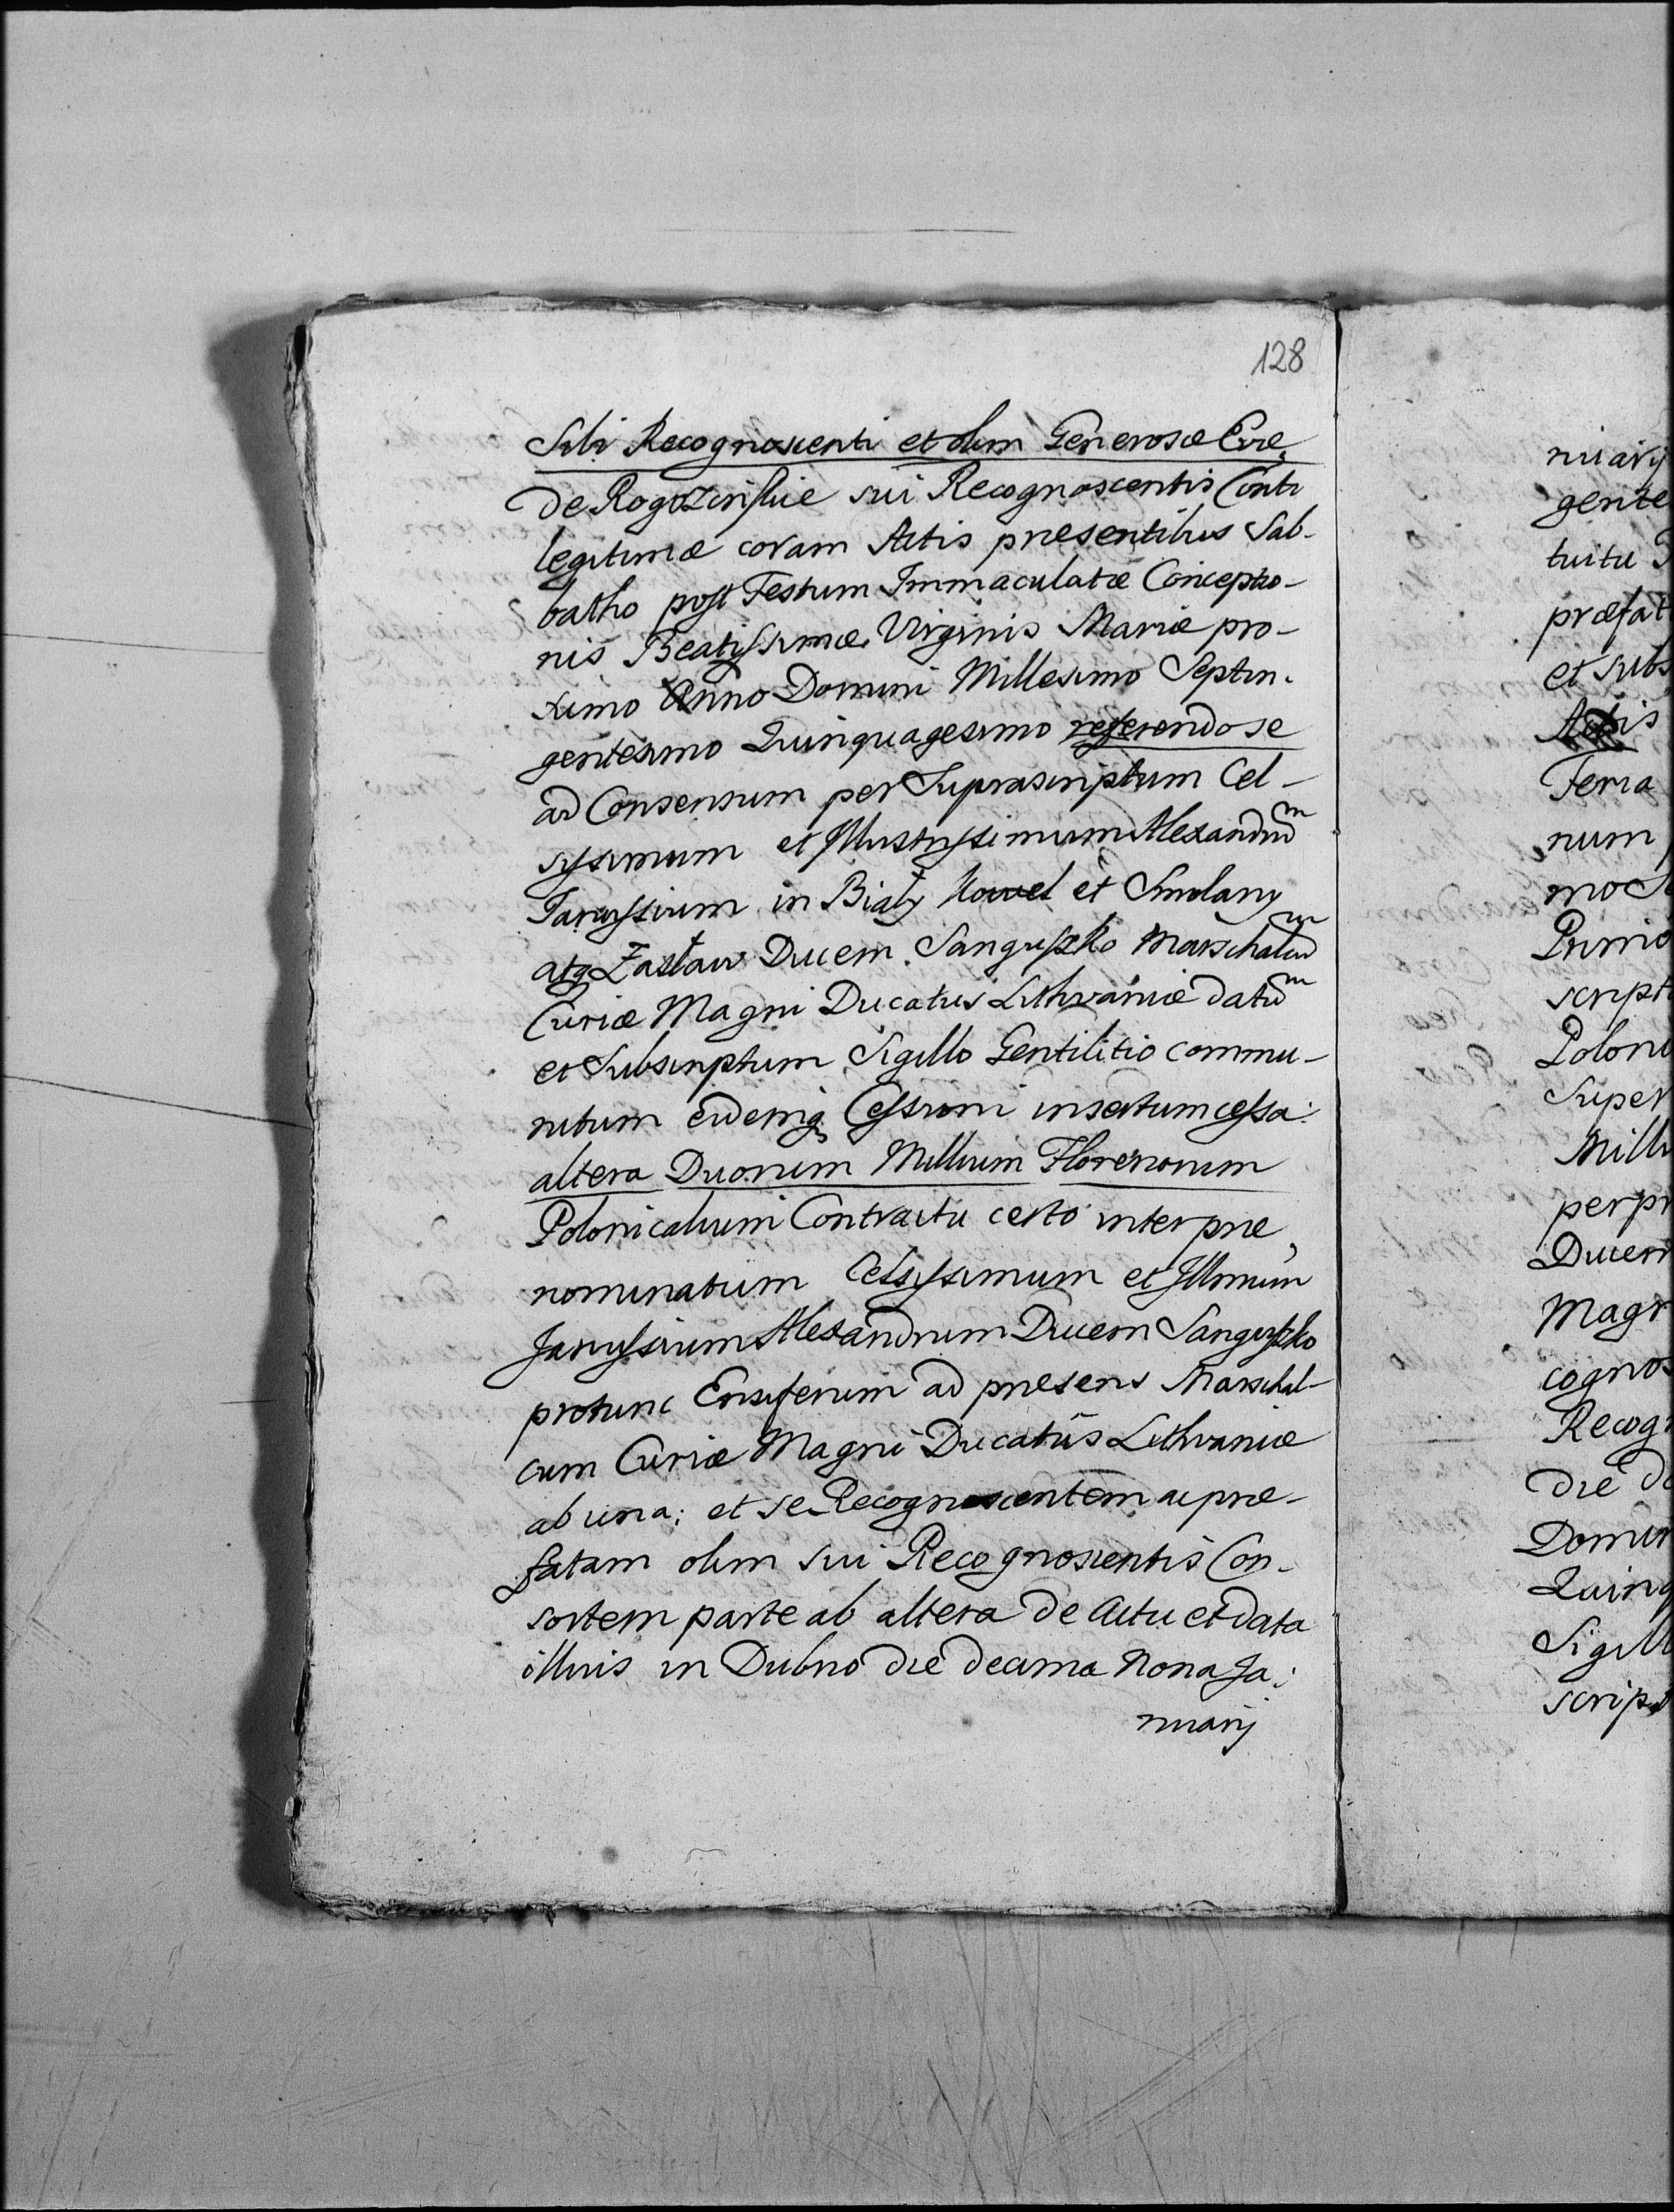 128
Sibi Recognoscenti et olim Generosæ Evæ
de Rogozinskie sui Recognoscentis Conti
legitimæ coram Actis præsentibus Sab-
batho post Festum Immaculatæ Conceptio-
nis Beatissimæ Virginis Mariæ pro-
ximo Anno Domini Millesimo Septin.
gentesimo Quinquagesimo referendo se
ad Consensum per Suprascriptum Cel-
sissimum et Illustrissimum Alexandrum
Janussium in Biały Kowel et Smolany
atq Zasław Ducem Sanguszko Marschalcum
Curiæ Magni Ducatus Lithvaniæ datum
et Subscriptum Sigillo Gentilitio commu-
nitum eidemq Cessioni insertum cessa:
altera Duorum Millium Florenorum
Polonicalium Contractu certo inter præ
nominatum Celsissimum et Illmum
Janussium Alexandrum Ducem Sanguszko
protunc Ensiferum ad præsens Marschal-
cum Curiæ Magni Ducatus Lithvaniæ
ab una; et se Recognoscentem ac præ-
fatam olim sui Recognoscentis Con-
sortem parte ab altera de Actu et data
illius in Dubno die decima Nona Ja:
nuarij
niarij
gente
tuitu
præfat
et subs
Actis
Feria
num
mo
Primo
script
Poloni
Super
Milli
per pr
Ducem
Magn
cognos
Recogn
die de
Domin
Quinq
Sigill
script